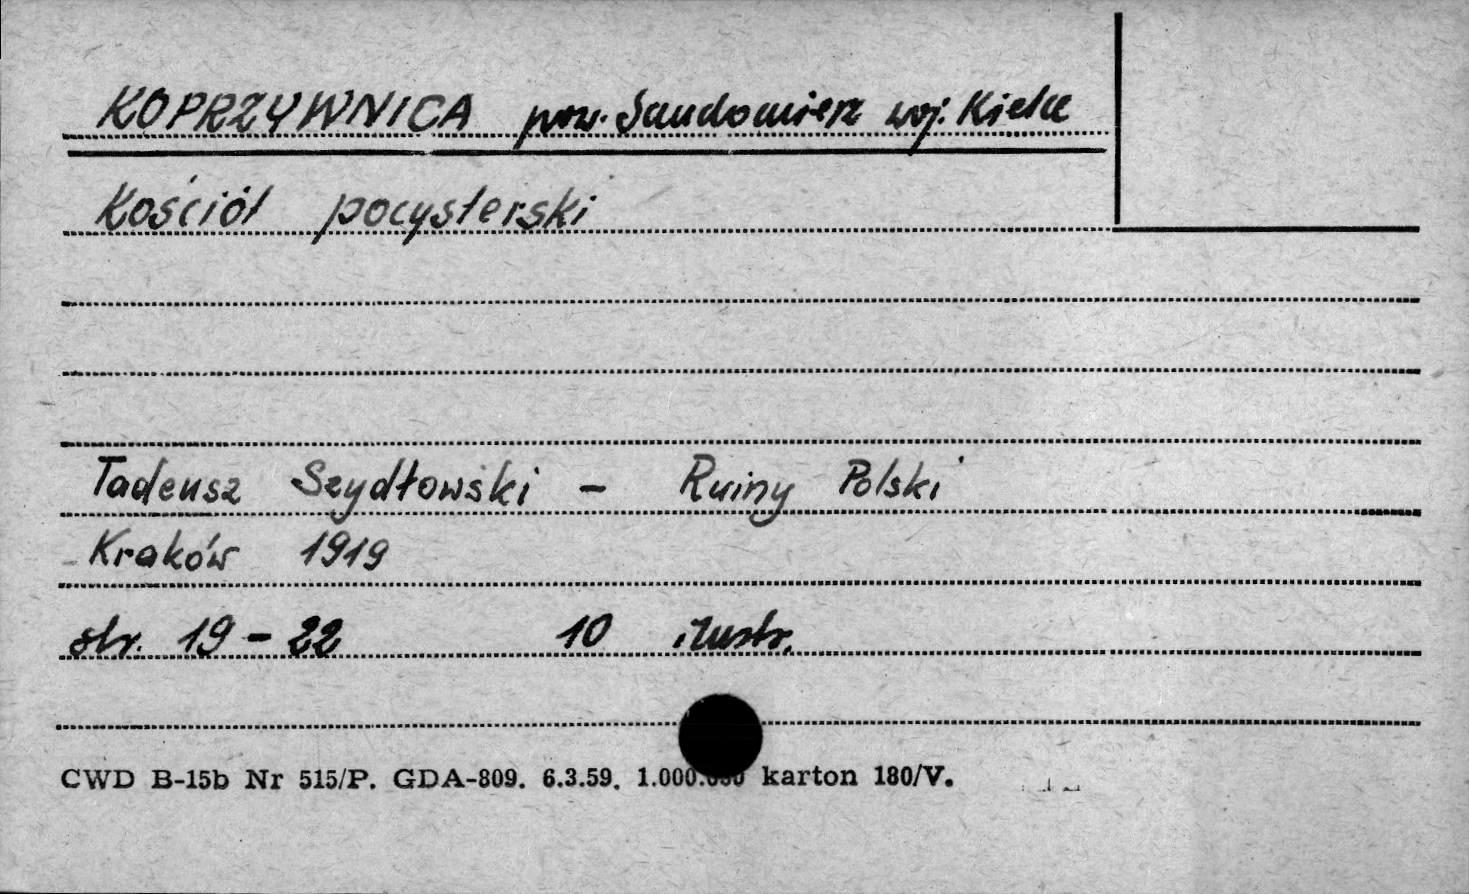 KOPRZYWNICA pow. Sandomierz woj. Kielce
Kościół pocysterski
Tadeusz Szydłowski - Ruiny Polski
Kraków 1919
str. 19-22 10 ilustr.
CWD B-15b Nr 515/P. GDA-809. 6.3.59. 1.000.000 karton 180/V.